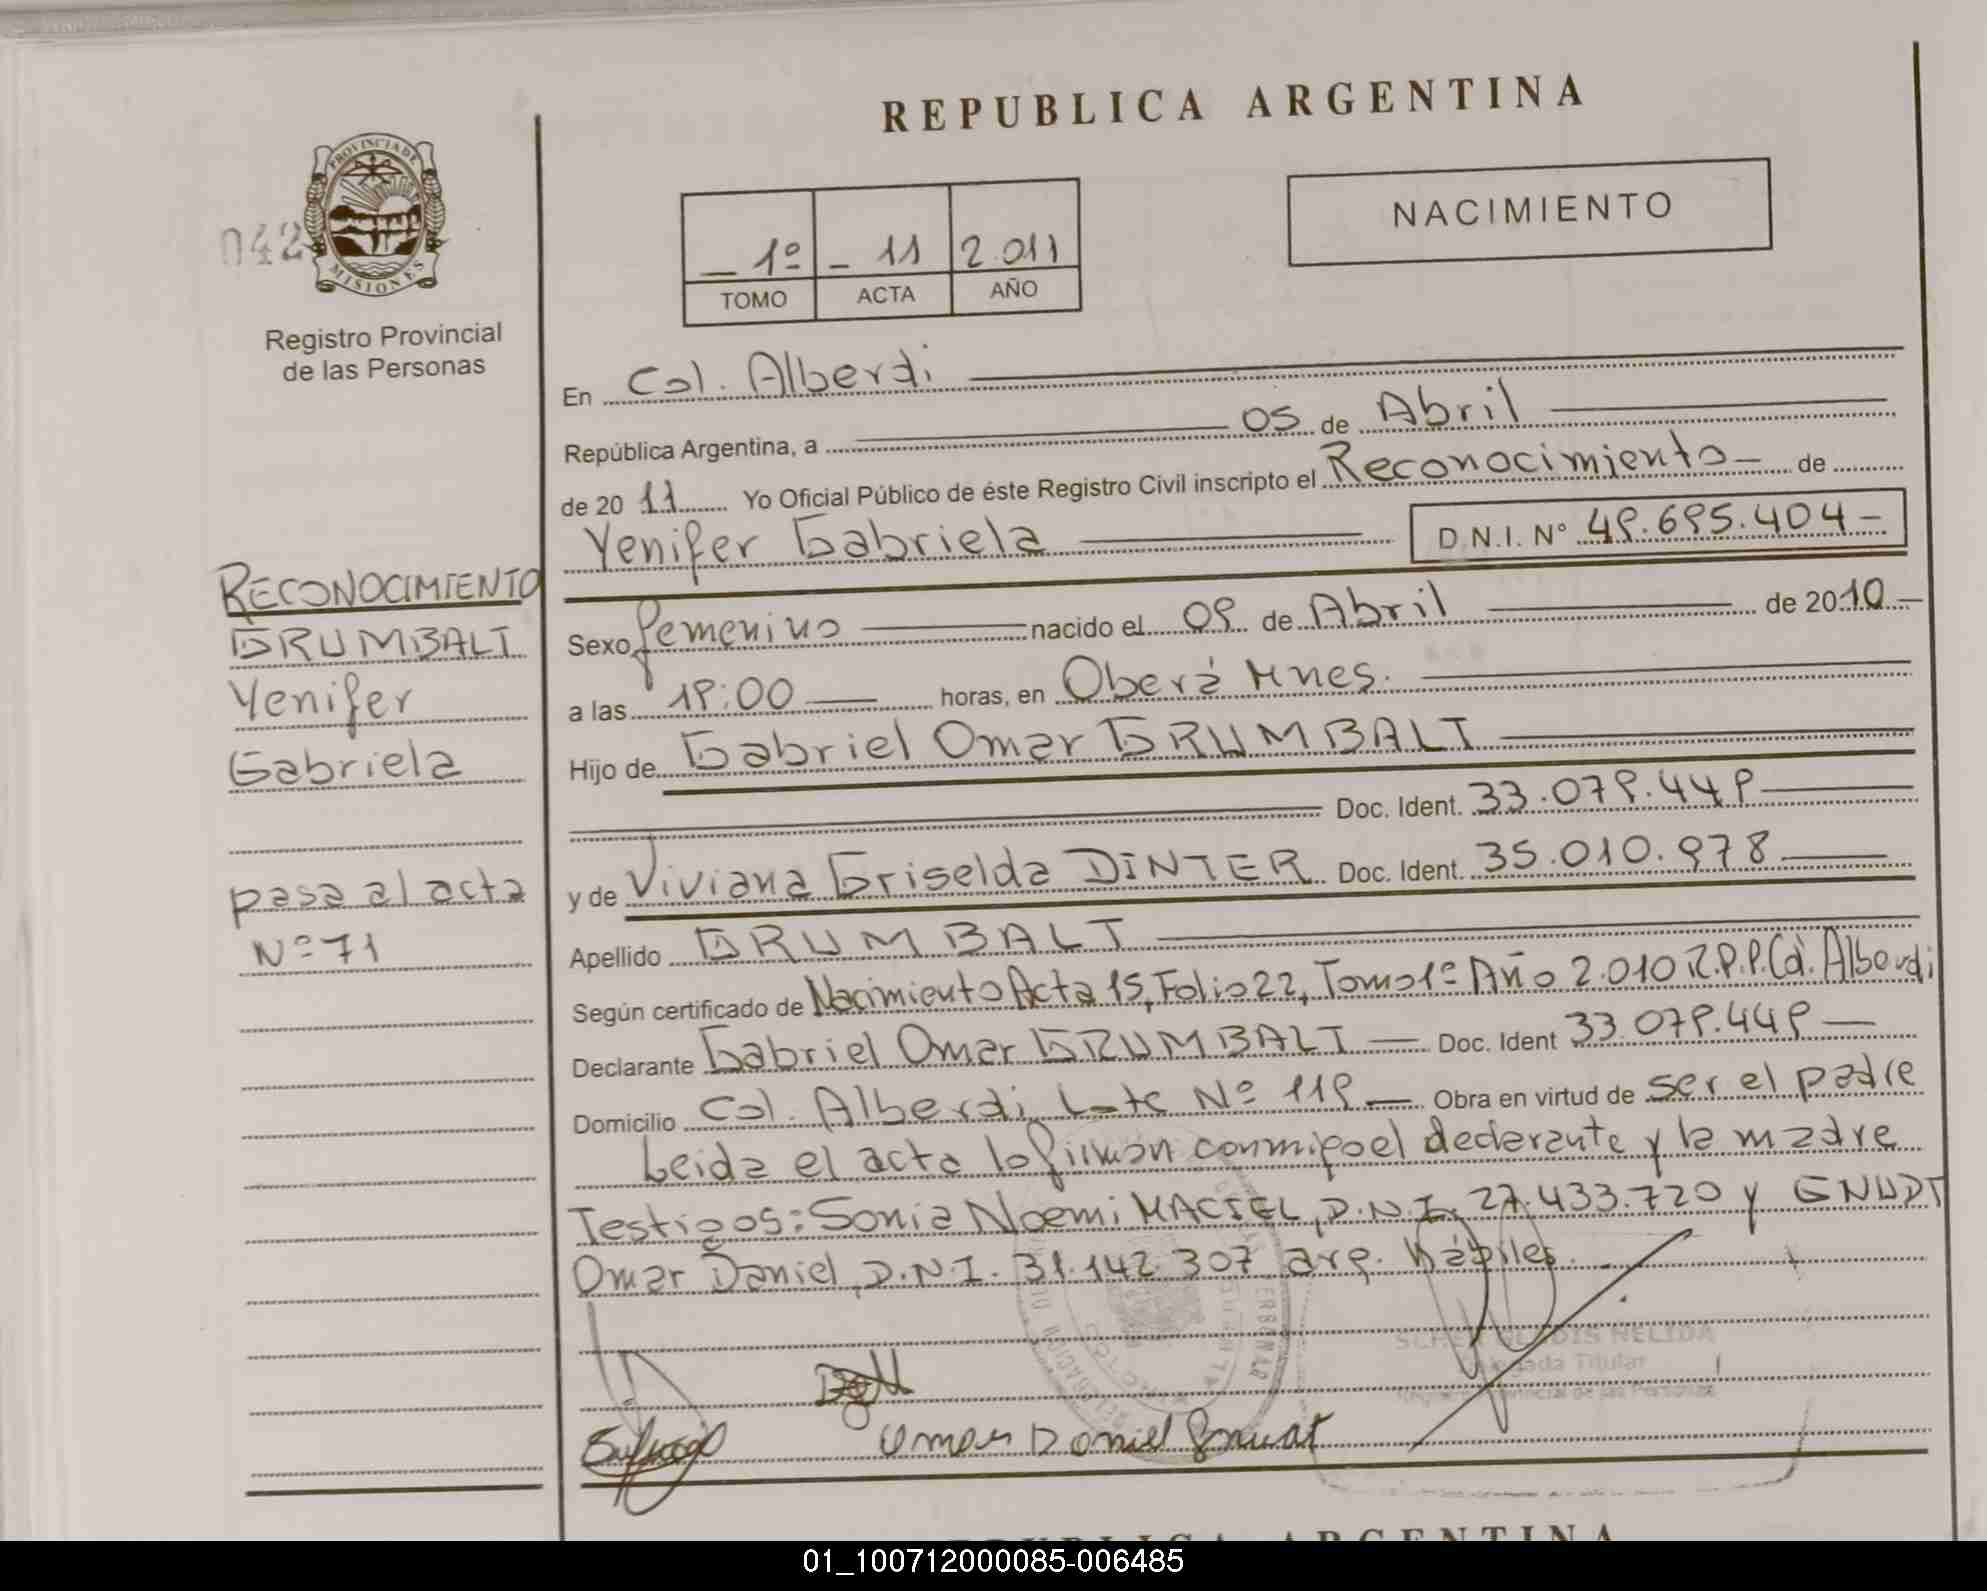 REPUBLICA ARGENTINA
NACIMIENTO
PROVINCIA DE
MISIONES
042
1º - 11 2.011
TOMO ACTA AÑO
Registro Provincial
de las Personas
En Col. Alberdi
República Argentina, a 05 de Abril
de 2011 Yo Oficial Público de éste Registro Civil inscripto el Reconocimiento de
Yenifer Gabriela D.N.I. Nº 49.695.404
RECONOCIMIENTO
GRUMBALT
Yenifer
Gabriela
pasa al acta
Nº 71
Sexo femenino nacido el 09 de Abril de 2010
a las 19:00 horas, en Oberá Mnes.
Hijo de Gabriel Omar GRUMBALT
Doc. Ident. 33.079.449
y de Viviana Griselda DINTER Doc. Ident. 35.010.978
Apellido GRUMBALT
Según certificado de Nacimiento Acta 15, Folio 22, Tomo 1º Año 2.010 R.P.P. Col. Alberdi
Declarante Gabriel Omar GRUMBALT Doc. Ident 33.079.449
Domicilio Col. Alberdi Lote Nº 119 Obra en virtud de ser el padre
Leida el acta lo firman conmigo el declarante y la madre
Testigos: Sonia Noemi MACIEL, D.N.I. 27.433.720 y GNUDT
Omar Daniel, D.N.I. 31.142.307 arg. hábiles.
NELIDA
Titular
Omar Daniel
REPUBLICA ARGENTINA
01_100712000085-006485